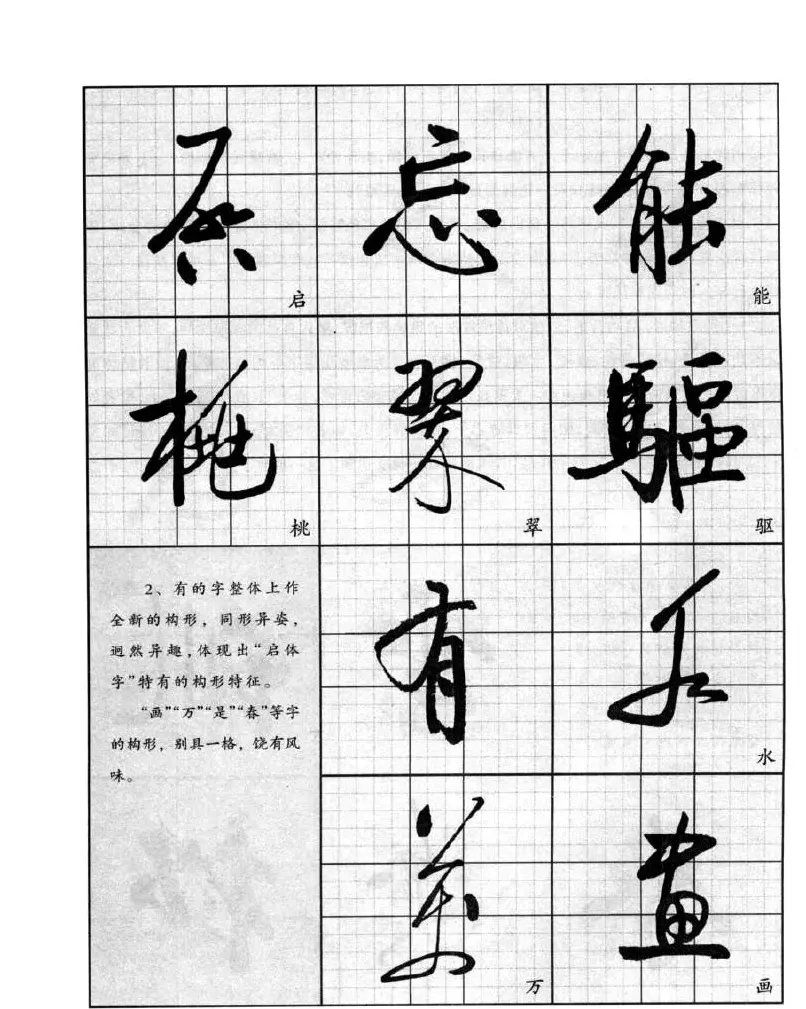 启 忘 能
启 能
桃 翠 驅
桃 翠 驱
2、有的字整体上作
全新的构形，同形异姿，
迥然异趣，体现出“启体
字”特有的构形特征。
“画”“万”“是”“春”等字
的构形，别具一格，饶有风
味。
有 水
水
萬 畫
万 画